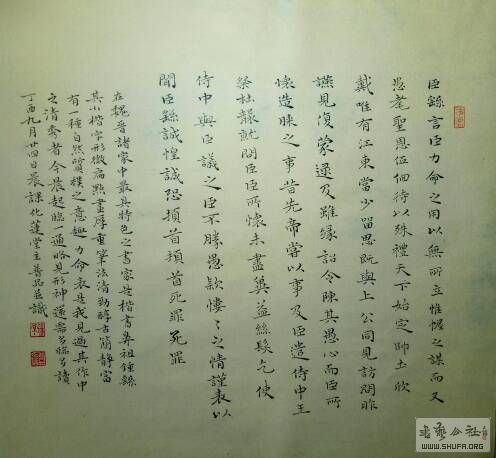 臣繇言臣力命之用以無所立惟幄之謀而又
愚耄聖恩低佪待以殊禮天下始定帥土欣
戴唯有江東當少留思既與上公同見訪問昨
讌見復蒙逮及雖緣詔令陳其愚心而臣所
懷造膝之事昔先帝嘗以事及臣遣侍中王
粲杜襲就問臣臣所懷未盡冀益絲髮乞使
侍中與臣議之臣不勝愚款悽〻之情謹表以
聞臣繇誠惶誠恐頓首頓首死罪死罪
在魏晉諸家中最具特色之書家是楷書鼻祖鍾繇
其小楷字形微扁點畫厚重筆法清勁醇古簡靜富
有一種自然質樸之意趣力命表是我見過其作中
之清秀者今晨起臨一通略見形神還需多臨多讀
丁酉九月廿四日晨課北蓮堂主普品並識
書藝公社
WWW.SHUFA.ORG